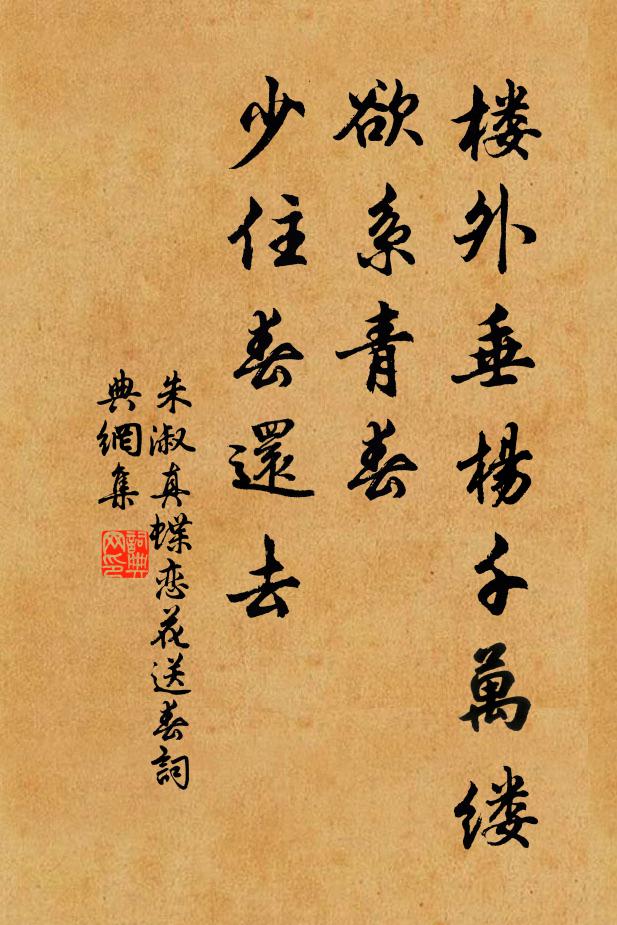 楼外垂楊千萬缕
欲系青春
少住春還去
朱淑真蝶恋花送春詞
典網集
詞典
网印